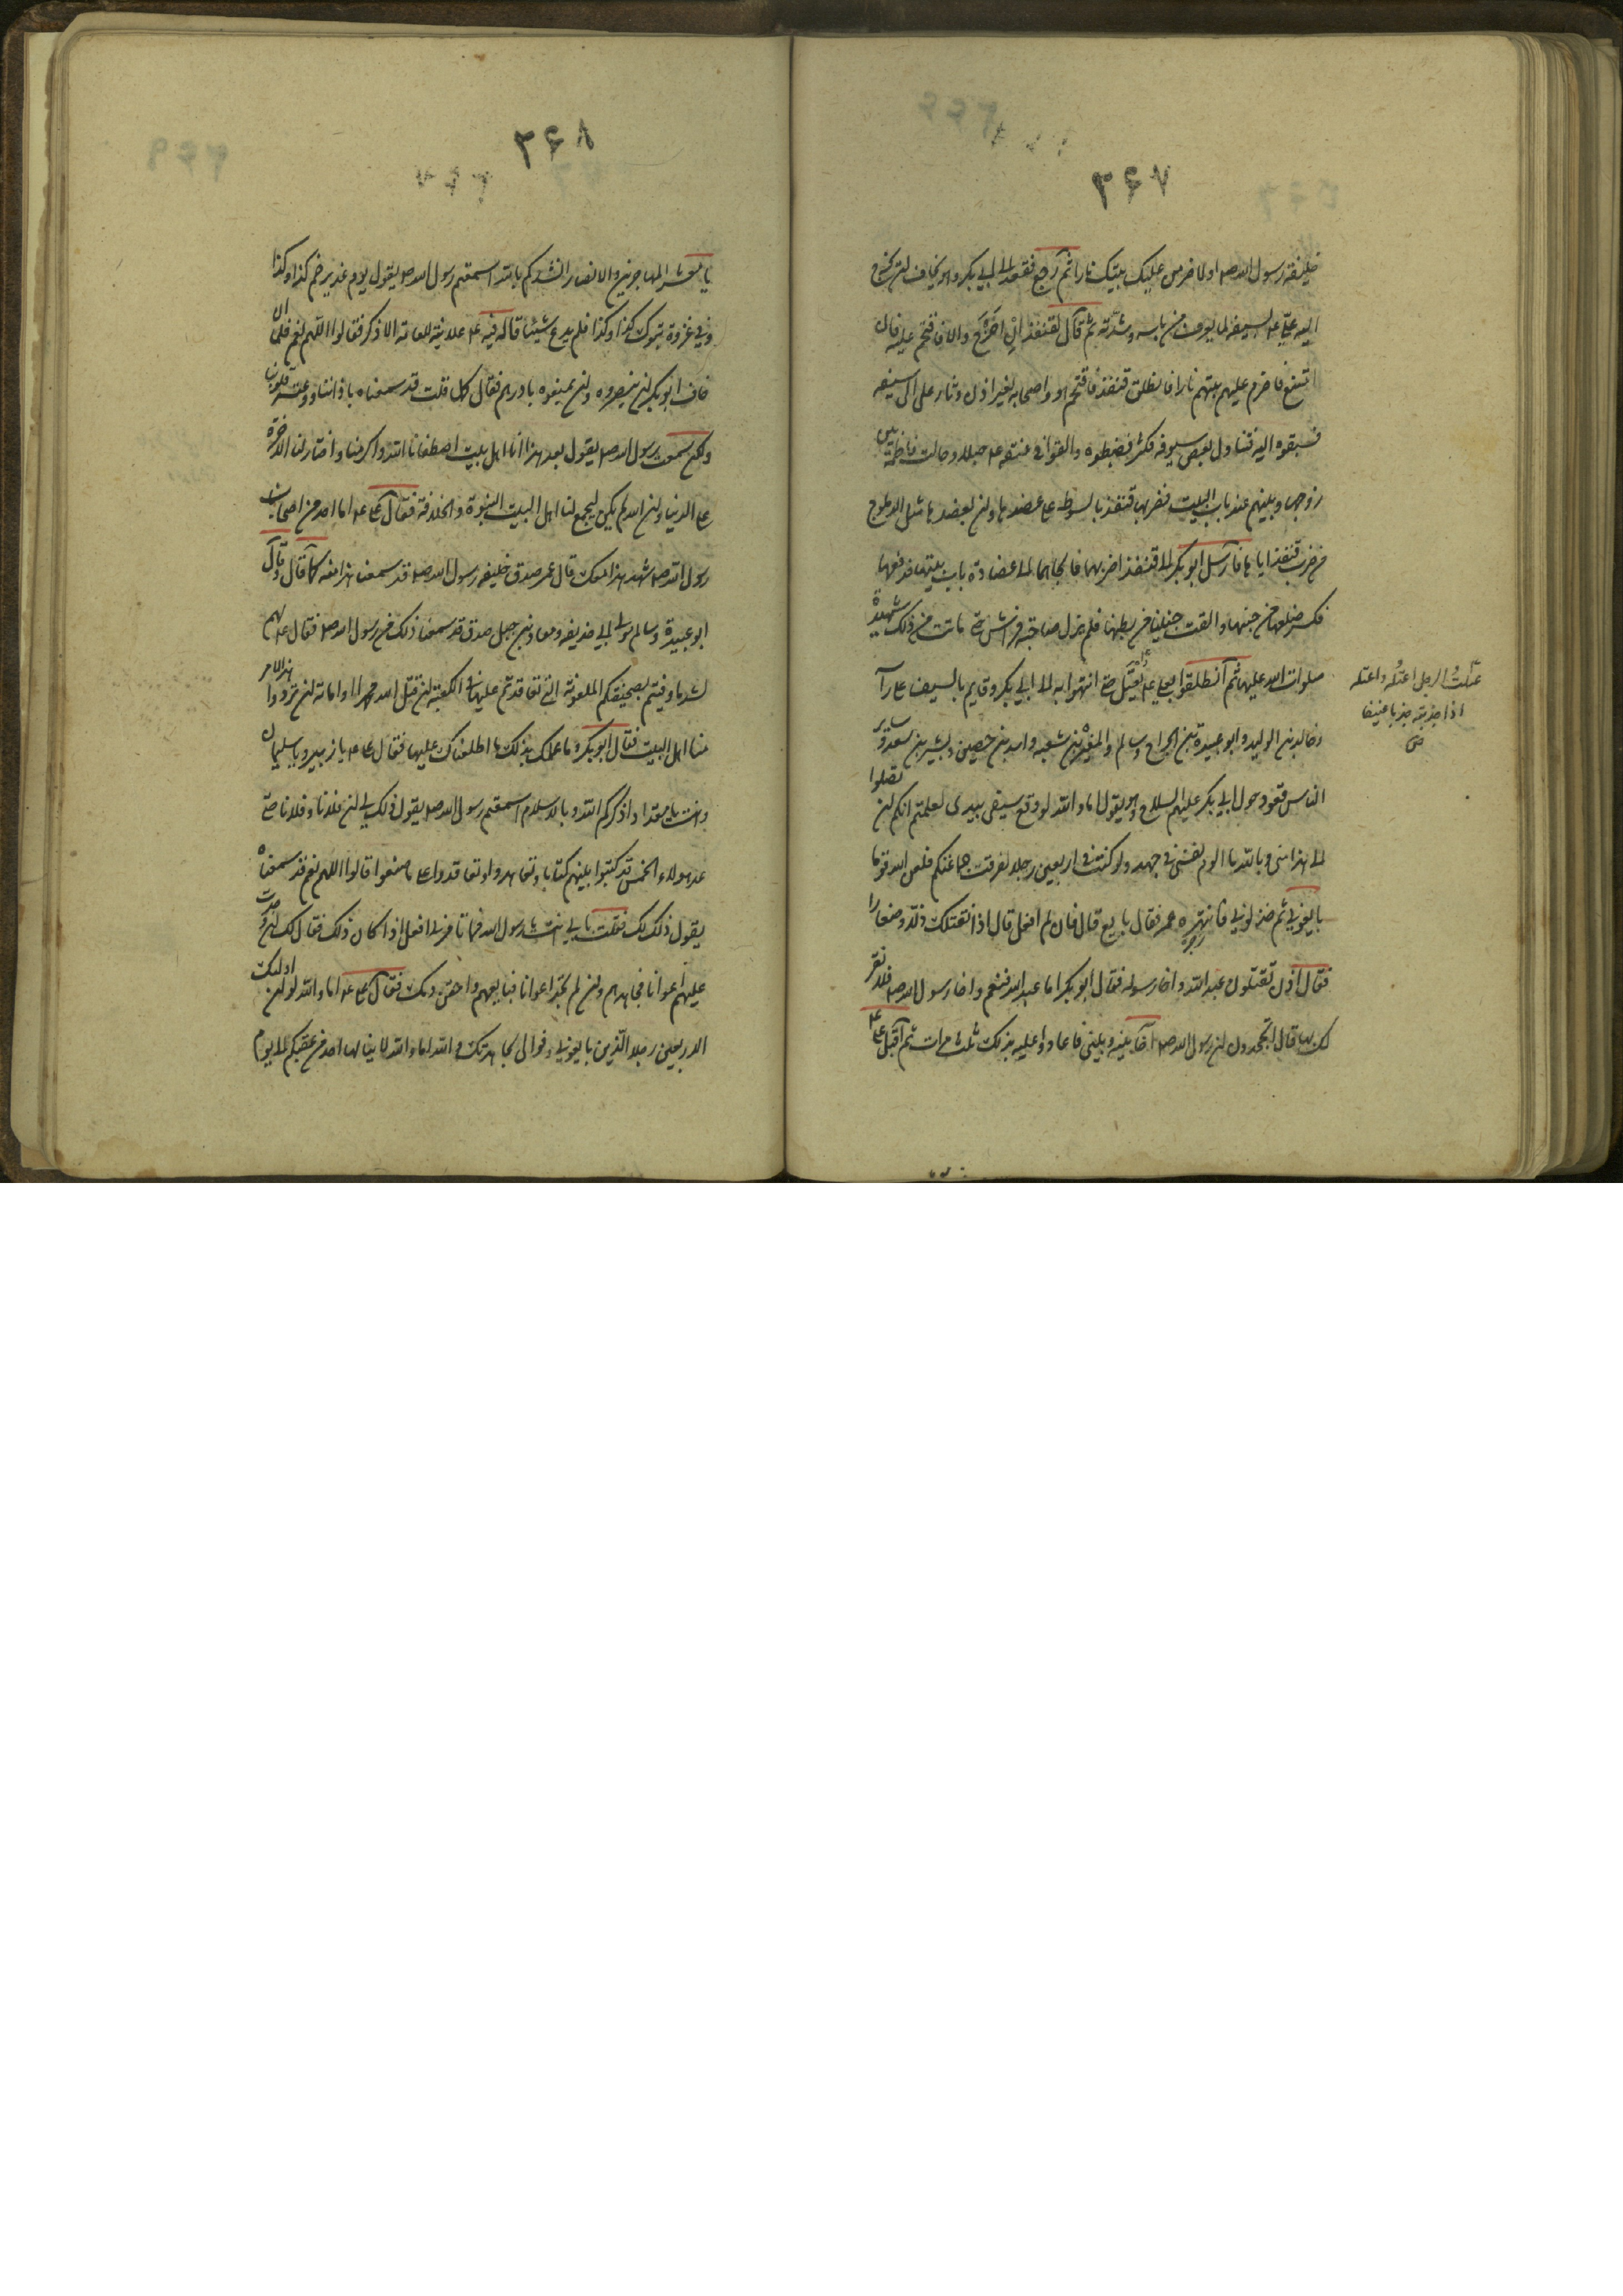 ٣۶٧
خليفة رسول الله صم او لاضرمن عليك بيتك نارا ثم رجع فقعد الى ابي بكر وهو يخاف ان يخرج
اليه علي عم بسيفه لما يعرف من باسه وشدته ثم قال لقنفذ ان خرج والا فاقتحم عليه فان
امتنع فاضرم عليهم بيتهم نارا فانطلق قنفذ فاقتحم هو واصحابه بغير اذن وثار علي الى سيفه
فسبقوه اليه فتناول بعض سيوفهم فكثروا فضبطوه والقوا في عنقه حبلا وحالت فاطمة بين
زوجها وبينهم عند باب البيت فضربها قنفذ بالسوط على عضدها وان بعضدها مثل الدملوج
من ضرب قنفذ اياها فارسل ابو بكر الى قنفذ اضربها فالجاها الى عضادة باب بيتها فدفعها
فكسر ضلعها من جنبها والقت جنينا من بطنها فلم تزل صاحبة فراش حتى ماتت من ذلك شهيدة
صلوات الله عليها ثم انطلقوا بعلي عم يعتل حتى انتهوا به الى ابي بكر وعمر قايم بالسيف على راسه
وخالد بن الوليد وابو عبيدة بن الجراح وسالم والمغيرة بن شعبه واسيد بن حصين وبشير بن سعد وساير
الناس قعود حول ابي بكر عليهم السلاح وهو يقول اما والله لو وقع سيفي بيدي لعلمتم انكم لن تصلوا
الى هذا مني وبالله ما الوم نفسي في جهد ولو كنت في اربعين رجلا لفرقت جماعتكم فلعن الله قوما
بايعوني ثم خذلوني فانتهره عمر فقال بايع قال فان لم افعل قال اذا نقتلك ذلا وصغارا
فقال اذن تقتلون عبد الله واخا رسوله فقال ابو بكر اما عبد الله فنعم واخا رسول الله صم فلا نقر
لك بها قال اتجحدون ان رسول الله صم اخا بينه وبيني فاعادوا عليه بذلك ثلث مرات ثم اقبل علي عم
عتلت الرجل اعتله واعتله
اذا جذبته جذبا عنيفا
ص
٣۶٨
يا معشر المهاجرين والانصار انشدكم بالله اسمعتم رسول الله صم يقول يوم غدير خم كذا وكذا
وفي غزوة تبوك كذا وكذا فلم يدع شيئا قاله فيه عم علانية للعامة الا ذكر فقالوا اللهم نعم فلما ان
خاف ابو بكر ان ينصروه وان يمنعوه بادرهم فقال كل ما قلت قد سمعناه باذاننا ووعته قلوبنا
ولكن سمعت رسول الله صم يقول بعد هذا انا اهل بيت اصطفانا الله واكرمنا واختار لنا الاخرة
على الدنيا وان الله لم يكن ليجمع لنا اهل البيت النبوة والخلافة فقال علي عم اما احد من اصحاب
رسول الله صم شهد هذا معك قال عمر صدق خليفه رسول الله صم قد سمعنا هذا منه كما قال وقال
ابو عبيدة وسالم مولى ابي حذيفه ومعاذ بن جبل صدق قد سمعنا ذلك من رسول الله صم فقال لهم
لشد ما وفيتم بصحيفتكم الملعونة التي تعاقدتم عليها في الكعبة ان قتل الله محمدا او اماته ان تزووا هذا الامر
منا اهل البيت فقال ابو بكر وما علمك بذلك ما اطلعناك عليها فقال علي عم يا زبير ويا سليمان
وانت يا مقداد اذكركم الله وبالاسلام اسمعتم رسول الله صم يقول ذلك لي ان فلانا وفلانا حتى
عد هولاء الخمس قد كتبوا بينهم كتابا وتعاهدوا وتعاقدوا على ما صنعوا قالوا اللهم نعم قد سمعناه
يقول ذلك لك فقلت بابي انت يا رسول الله فما تامرني ان افعل اذا كان ذلك فقال لك ان وجدت
عليهم اعوانا فجاهدهم وان لم تجد اعوانا فبايعهم واحقن دمك فقال علي عم اما والله لو ان اولئك
الاربعين رجلا الذين بايعوني وفوا لي لجاهدتك في الله اما والله لا ينالها احد من عقبكم الى يوم